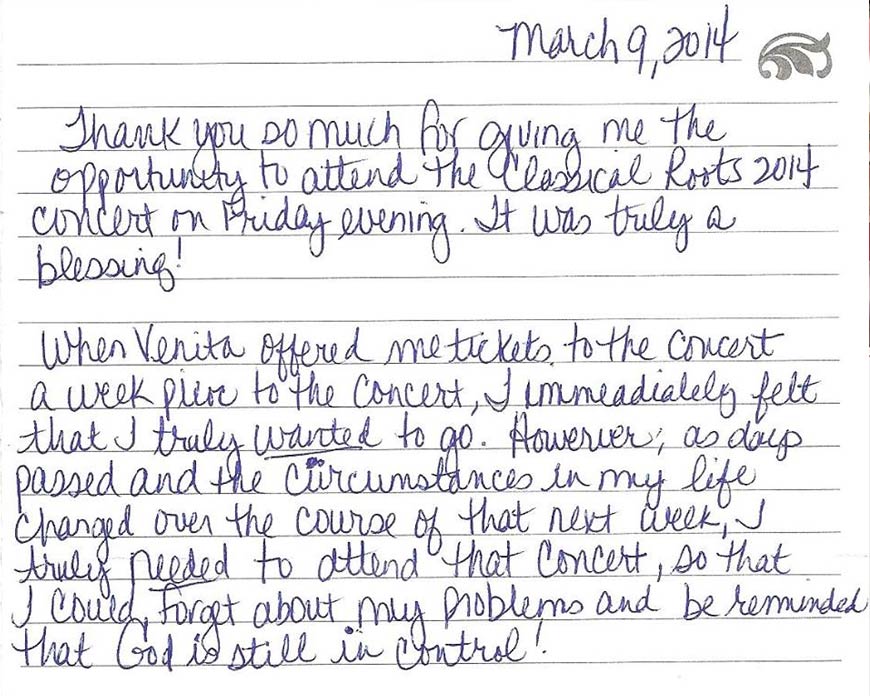 March 9, 2014
Thank you so much for giving me the
opportunity to attend the Classical Roots 2014
concert on Friday evening. It was truly a
blessing!
When Venita offered me tickets to the concert
a week prior to the concert, I immeadialely felt
that I truly wanted to go. However, as days
passed and the circumstances in my life
changed over the course of that next week, I
truly needed to attend that concert, so that
I could forget about my problems and be reminded
that God is still in control!